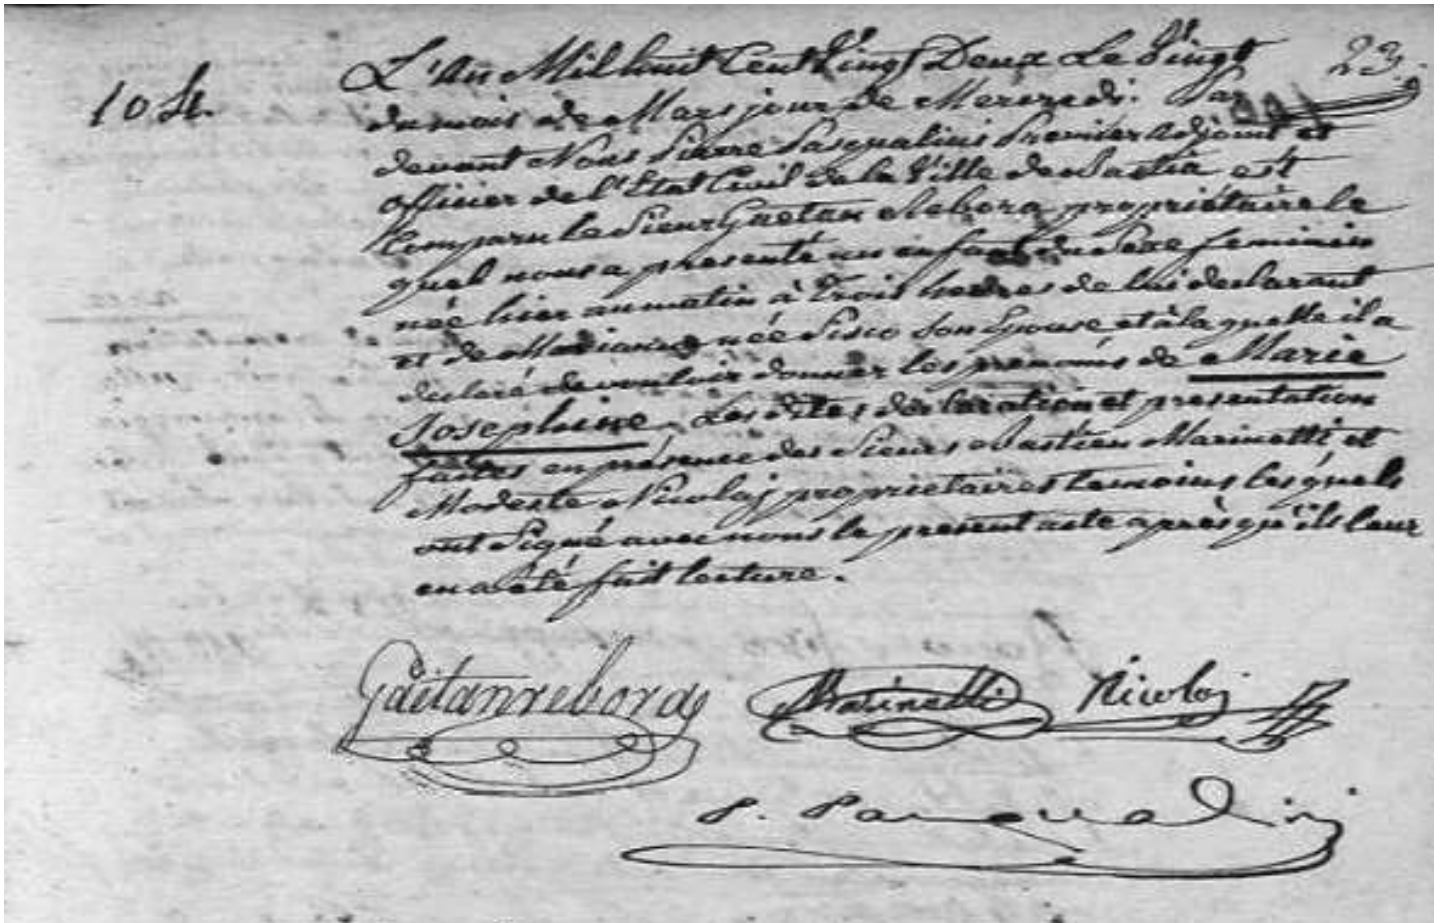 23.
104.
L'An Mil huit Cent Vingt Deux Le Vingt
du mois de Mars jour de Mercredi. Par
devant Nous Pierre Pasqualini Premier Adjoint et
officier de l'Etat Civil de la Ville de Bastia est
Comparu le Sieur Gaëtan Rebora propriétaire le
quel nous a presenté un enfant du Sexe feminin
née hier au matin à Trois heures de lui declarant
et de Marianne née Sisco Son Epouse et à la quelle il a
declaré de vouloir donner les prenoms de Marie
Josephine, Les dites declaration et presentation
faites en présence des Sieurs Bastien Marinetti, et
Modeste Nicolaj propriétaires temoins les quels
ont Signé avec nous le present acte après qu'ils leur
en a été fait lecture.
Gaëtan rebora
Marinetti Nicolaj
P. Pasqualini